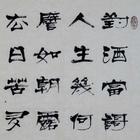 對酒當謌
人生幾何
譬如朝露
去日苦多